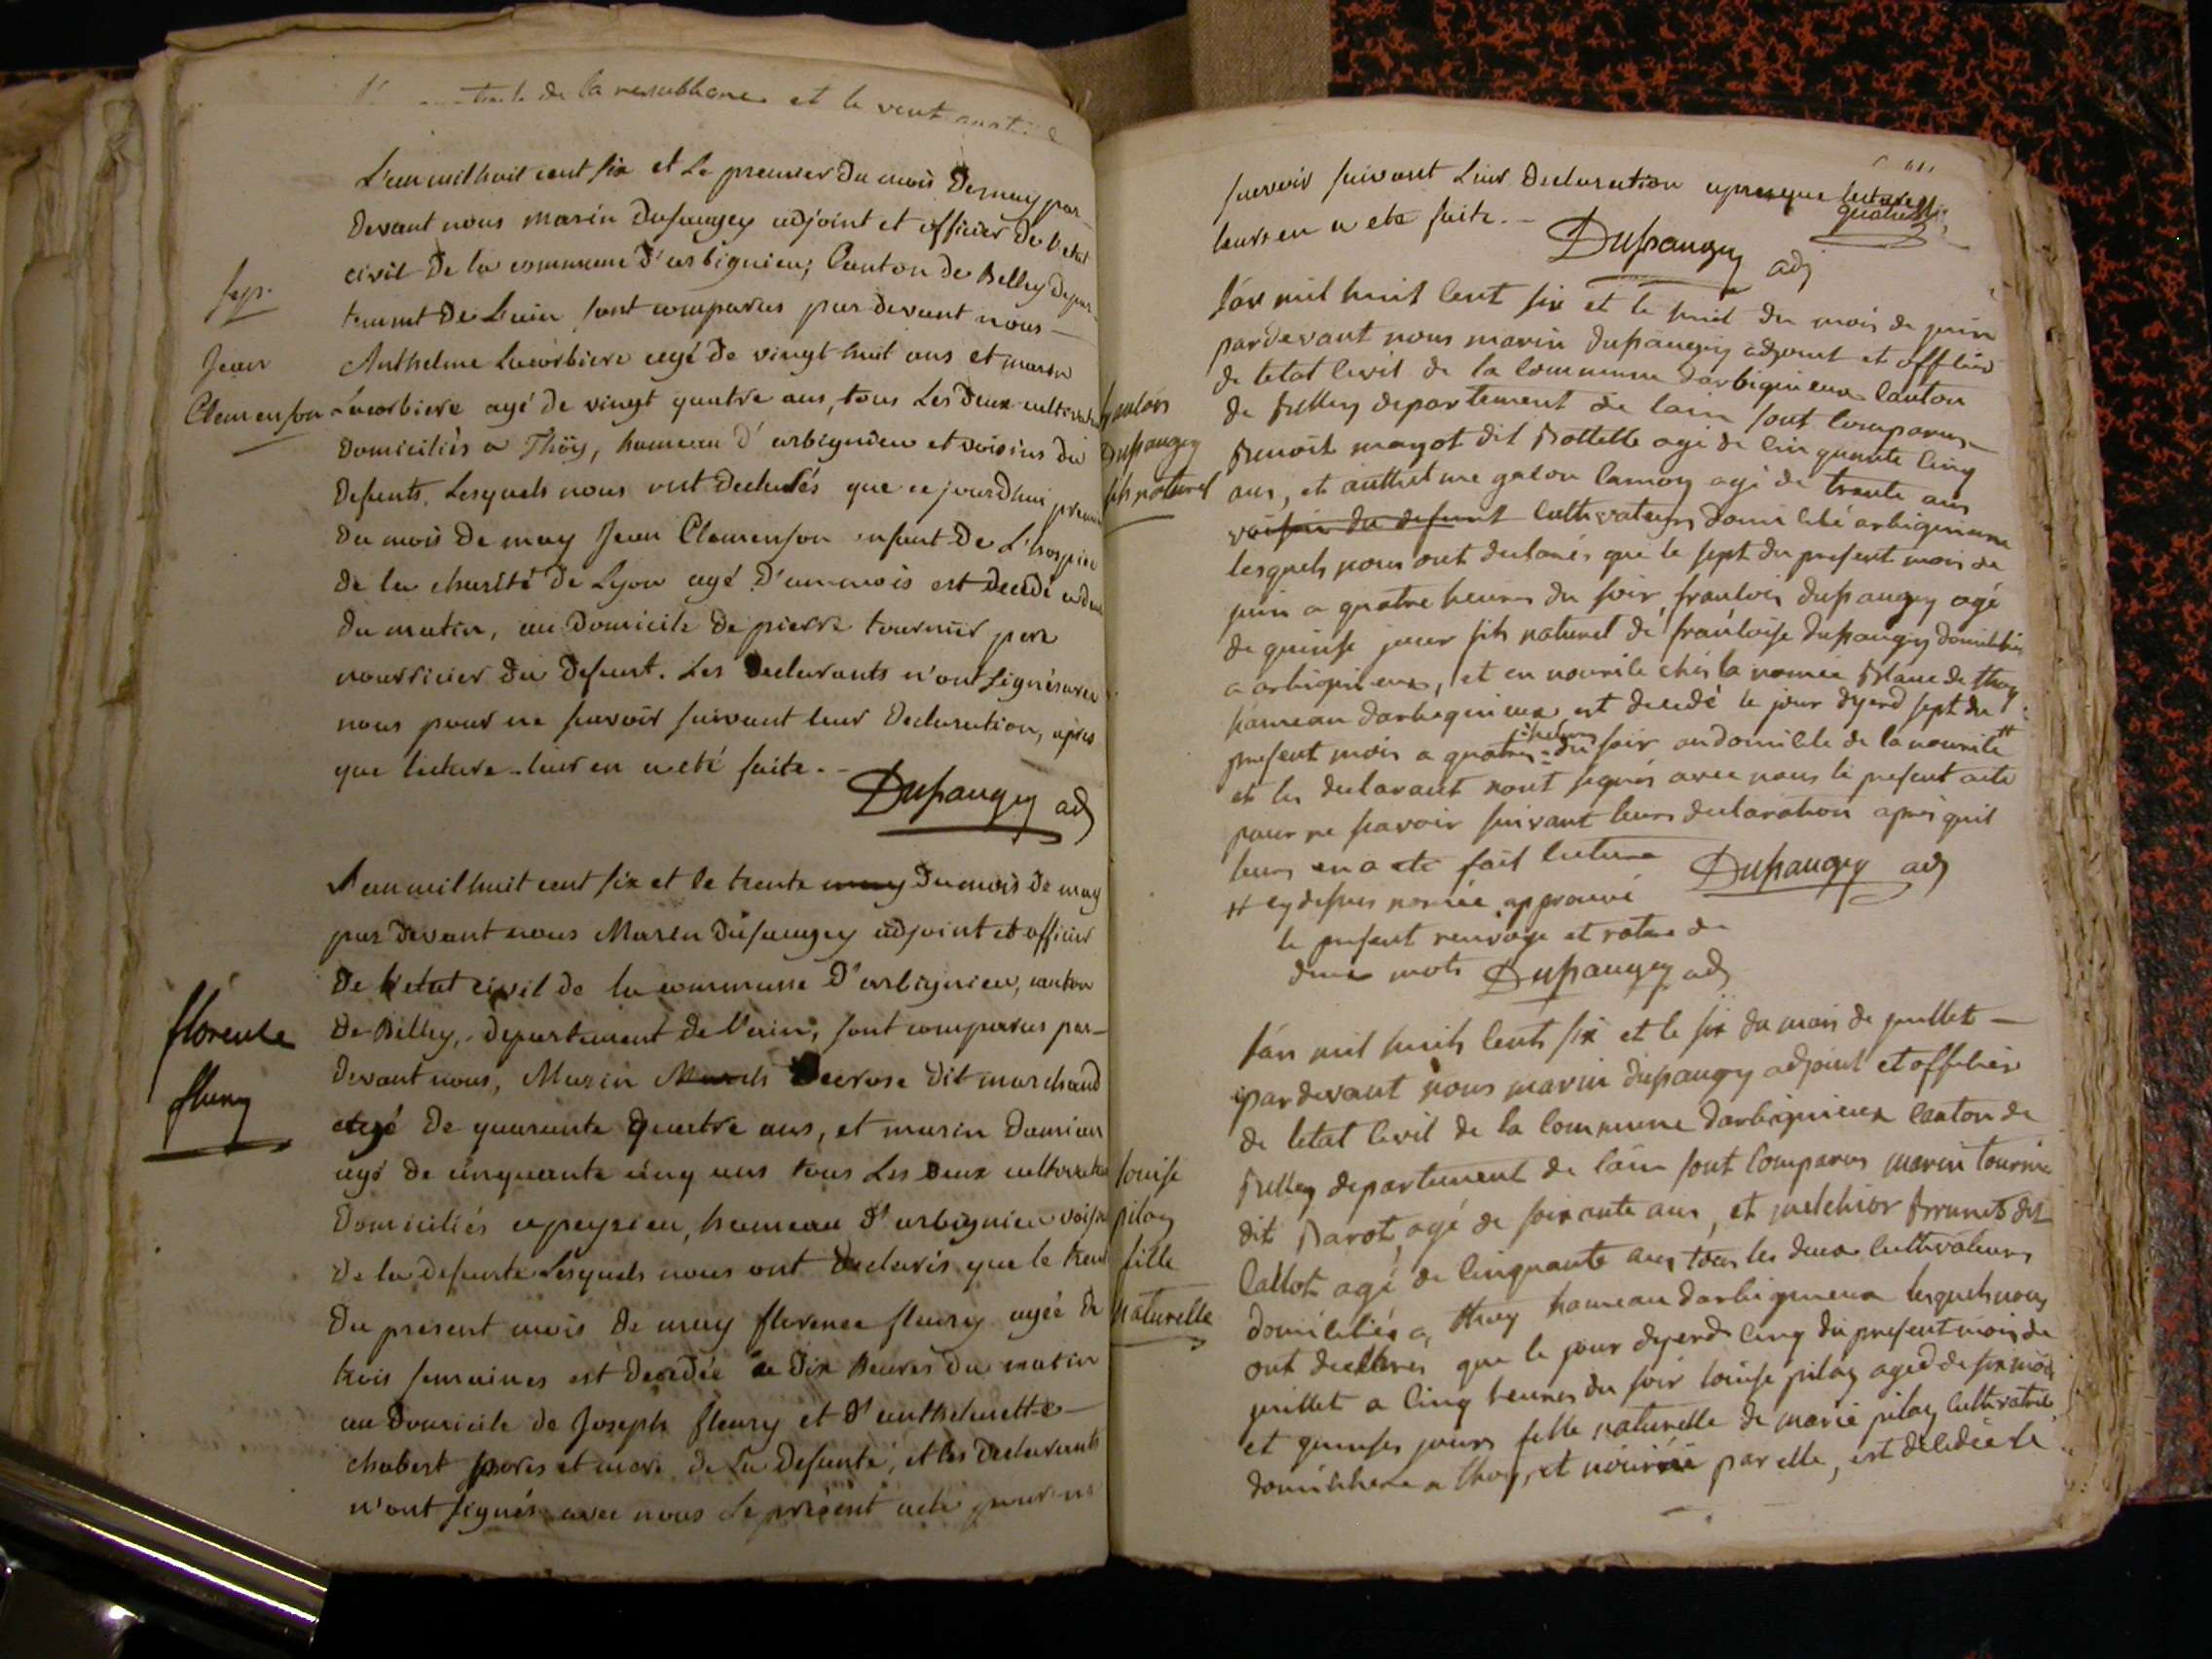 de la republique et le vent
L'an mil huit cent six et Le premier du mois de may par
devant nous marin Dupaugey adjoint et officier de l'etat
civil De la commune d'arbignieu, Canton de Belley depar-
tement De Lain sont comparus par devant nous
Sep.
Jean
Clemenson
Anthelme Lacorbiere agé de vingt huit ans et marin
Lacorbiere agé de vingt quatre ans, tous Les deux cultivateurs
domiciliés a Thöy, hameau d'arbignieu et voisins du
defunts. Lesquels nous ont declarés que ce jourdhui premier
du mois de may Jean Clemenson enfant de L'hospice
de la charité de Lyon agé d'un mois est decedé a deux
du matin, au domicile de pierre tournier pere
nourricier du defunt. Les declarants n'ont signés avec
nous pour ne savoir suivant leur declaration, apres
que lecture leur en a eté faite.
Dupaugey adj
L'an mil huit cent six et le trente may du mois de may
par devant nous Marin Dupaugey adjoint et officier
De l'etat civil de la commune D'arbignieu, canton
De Belley, departement de l'ain, sont comparus par-
florence
fleury
devant nous, Marin Decrose dit marchand
agé De quarante quatre ans, et marin Damian
agé de cinquante cinq ans tous Les deux cultivateurs
Domiciliés a peyzieu, hameau d'arbignieu voisins
de la defunte Lesquels nous ont declarés que le trente
du present mois de may florence fleury agée de
trois semaines est decedée a dix heures du matin
au domicile de Joseph fleury et d'anthelmette
chabert peres et mere de La defunte, et les declarants
n'ont signés avec nous Le present acte pour ne
scavoir suivant Leur declaration apres que lecture
leurs en a ete faite.
Dupaugey adj
francois
Dupaugey
fils naturel
Lan mil huit cent six et le huit du mois de juin
pardevant nous marin dupaugey adjoint et officier
de letat civil de la commune darbignieux canton
de Belley departement de lain sont comparus
Benoit magot dit Bottelle agé de cinquante cinq
ans, et anthelme galon lamoy agé de trente ans
voisin du defunt cultivateurs domicilié arbignieux
lesquels nous ont declarés que le sept du present mois de
juin a quatre heures du soir francois dupaugey agé
de quinse jour fils naturel de francoise dupaugey domiciliée
a arbignieux, et en nourrice ches la nomée Blanc de thoy
hameau darbignieux est decedé le jour dyerd sept du
present mois a quatre heures du soir au domicile de la nourrice #
et les declarant nont signés avec nous le present acte
pour ne scavoir suivant leurs declaration apres quil
leurs en a ete fait lecture Dupaugey adj
# cy dessus nomée approuvé
le present renvoye et rature de
deux mots Dupaugey adj
louise
piloy
fille
naturelle
Lan mil huit cents six et le six du mois de juillet
pardevant nous marin dupaugey adjoint et officier
de letat civil de la commune darbignieux canton de
Belley departement de lain sont comparus marin tournie
dit Barot, agé de soixante ans, et melchior Brunet dit
Callot agé de cinquante ans tous les deux cultivateurs
domiciliés a thoy hameau darbignieux lesquels nous
ont declares que le jour dyerd cinq du present mois de
juillet a cinq heures du soir louise piloy aged de six mois
et quinses jours fille naturelle de marie piloy cultivatrice
domiciliere a thoy, et nourrie par elle, est decedée le